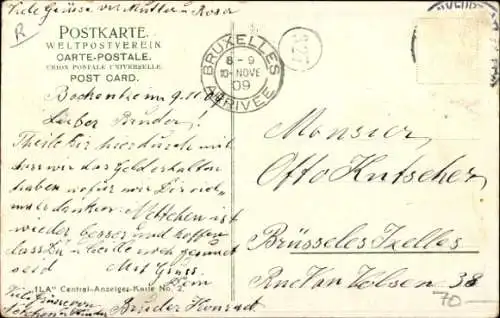 Viele Grüsse von Mutter u Rosa
R
POSTKARTE.
WELTPOSTVEREIN
CARTE-POSTALE.
UNION POSTALE UNIVERSELLE.
POST CARD.
BRUXELLES
8-9
10-NOVE
09
ARRIVÉE
Bockenheim 9.11.09
Lieber Bruder!
Theile Dir hierdurch mit
dass wir das Geld erhalten
haben wofür wir Dir
danken. ist
wieder besser und hoffen
dass Du u Cecile noch gesund
seid Mit Gruss
Dein
Bruder Konrad
"ILA" Central-Anzeiger-Karte No. 2.
Viele Grüsse von
Monsieur
Otto Kutscher
Brüsseles Ixelles
Rue Van 38
70